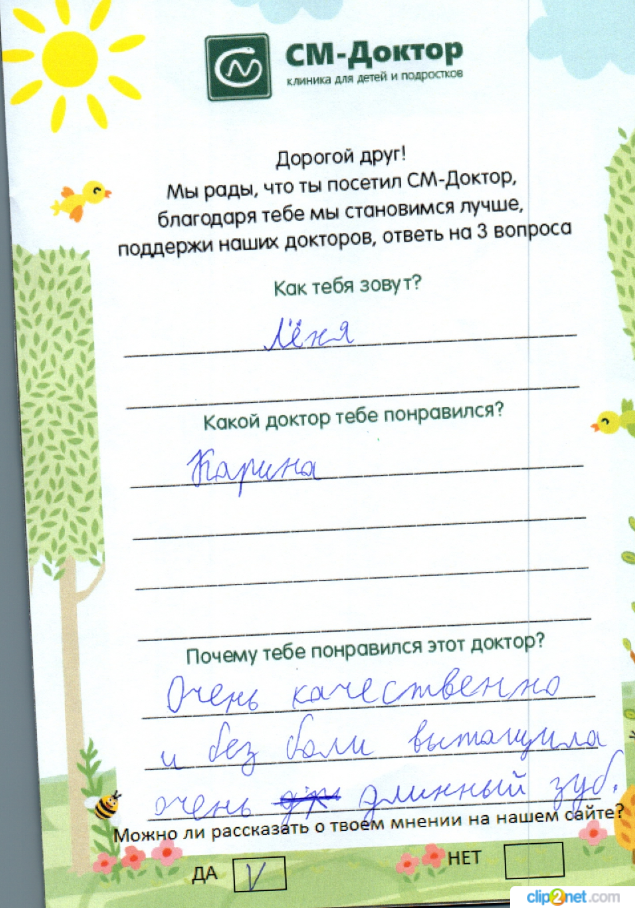 СМ-Доктор
клиника для детей и подростков
Дорогой друг!
Мы рады, что ты посетил СМ-Доктор,
благодаря тебе мы становимся лучше,
поддержи наших докторов, ответь на 3 вопроса
Как тебя зовут?
Лёня
Какой доктор тебе понравился?
Карина
Почему тебе понравился этот доктор?
Очень качественно
и без боли вытащила
очень длинный зуб.
Можно ли рассказать о твоем мнении на нашем сайте?
ДА V НЕТ
clip2net.com